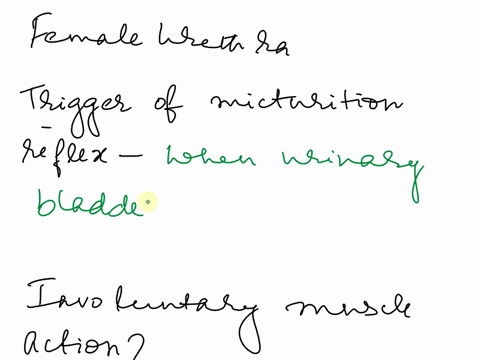 Female Urethra
Trigger of micturition
reflex - when urinary
bladde
Involuntary muscle
action?